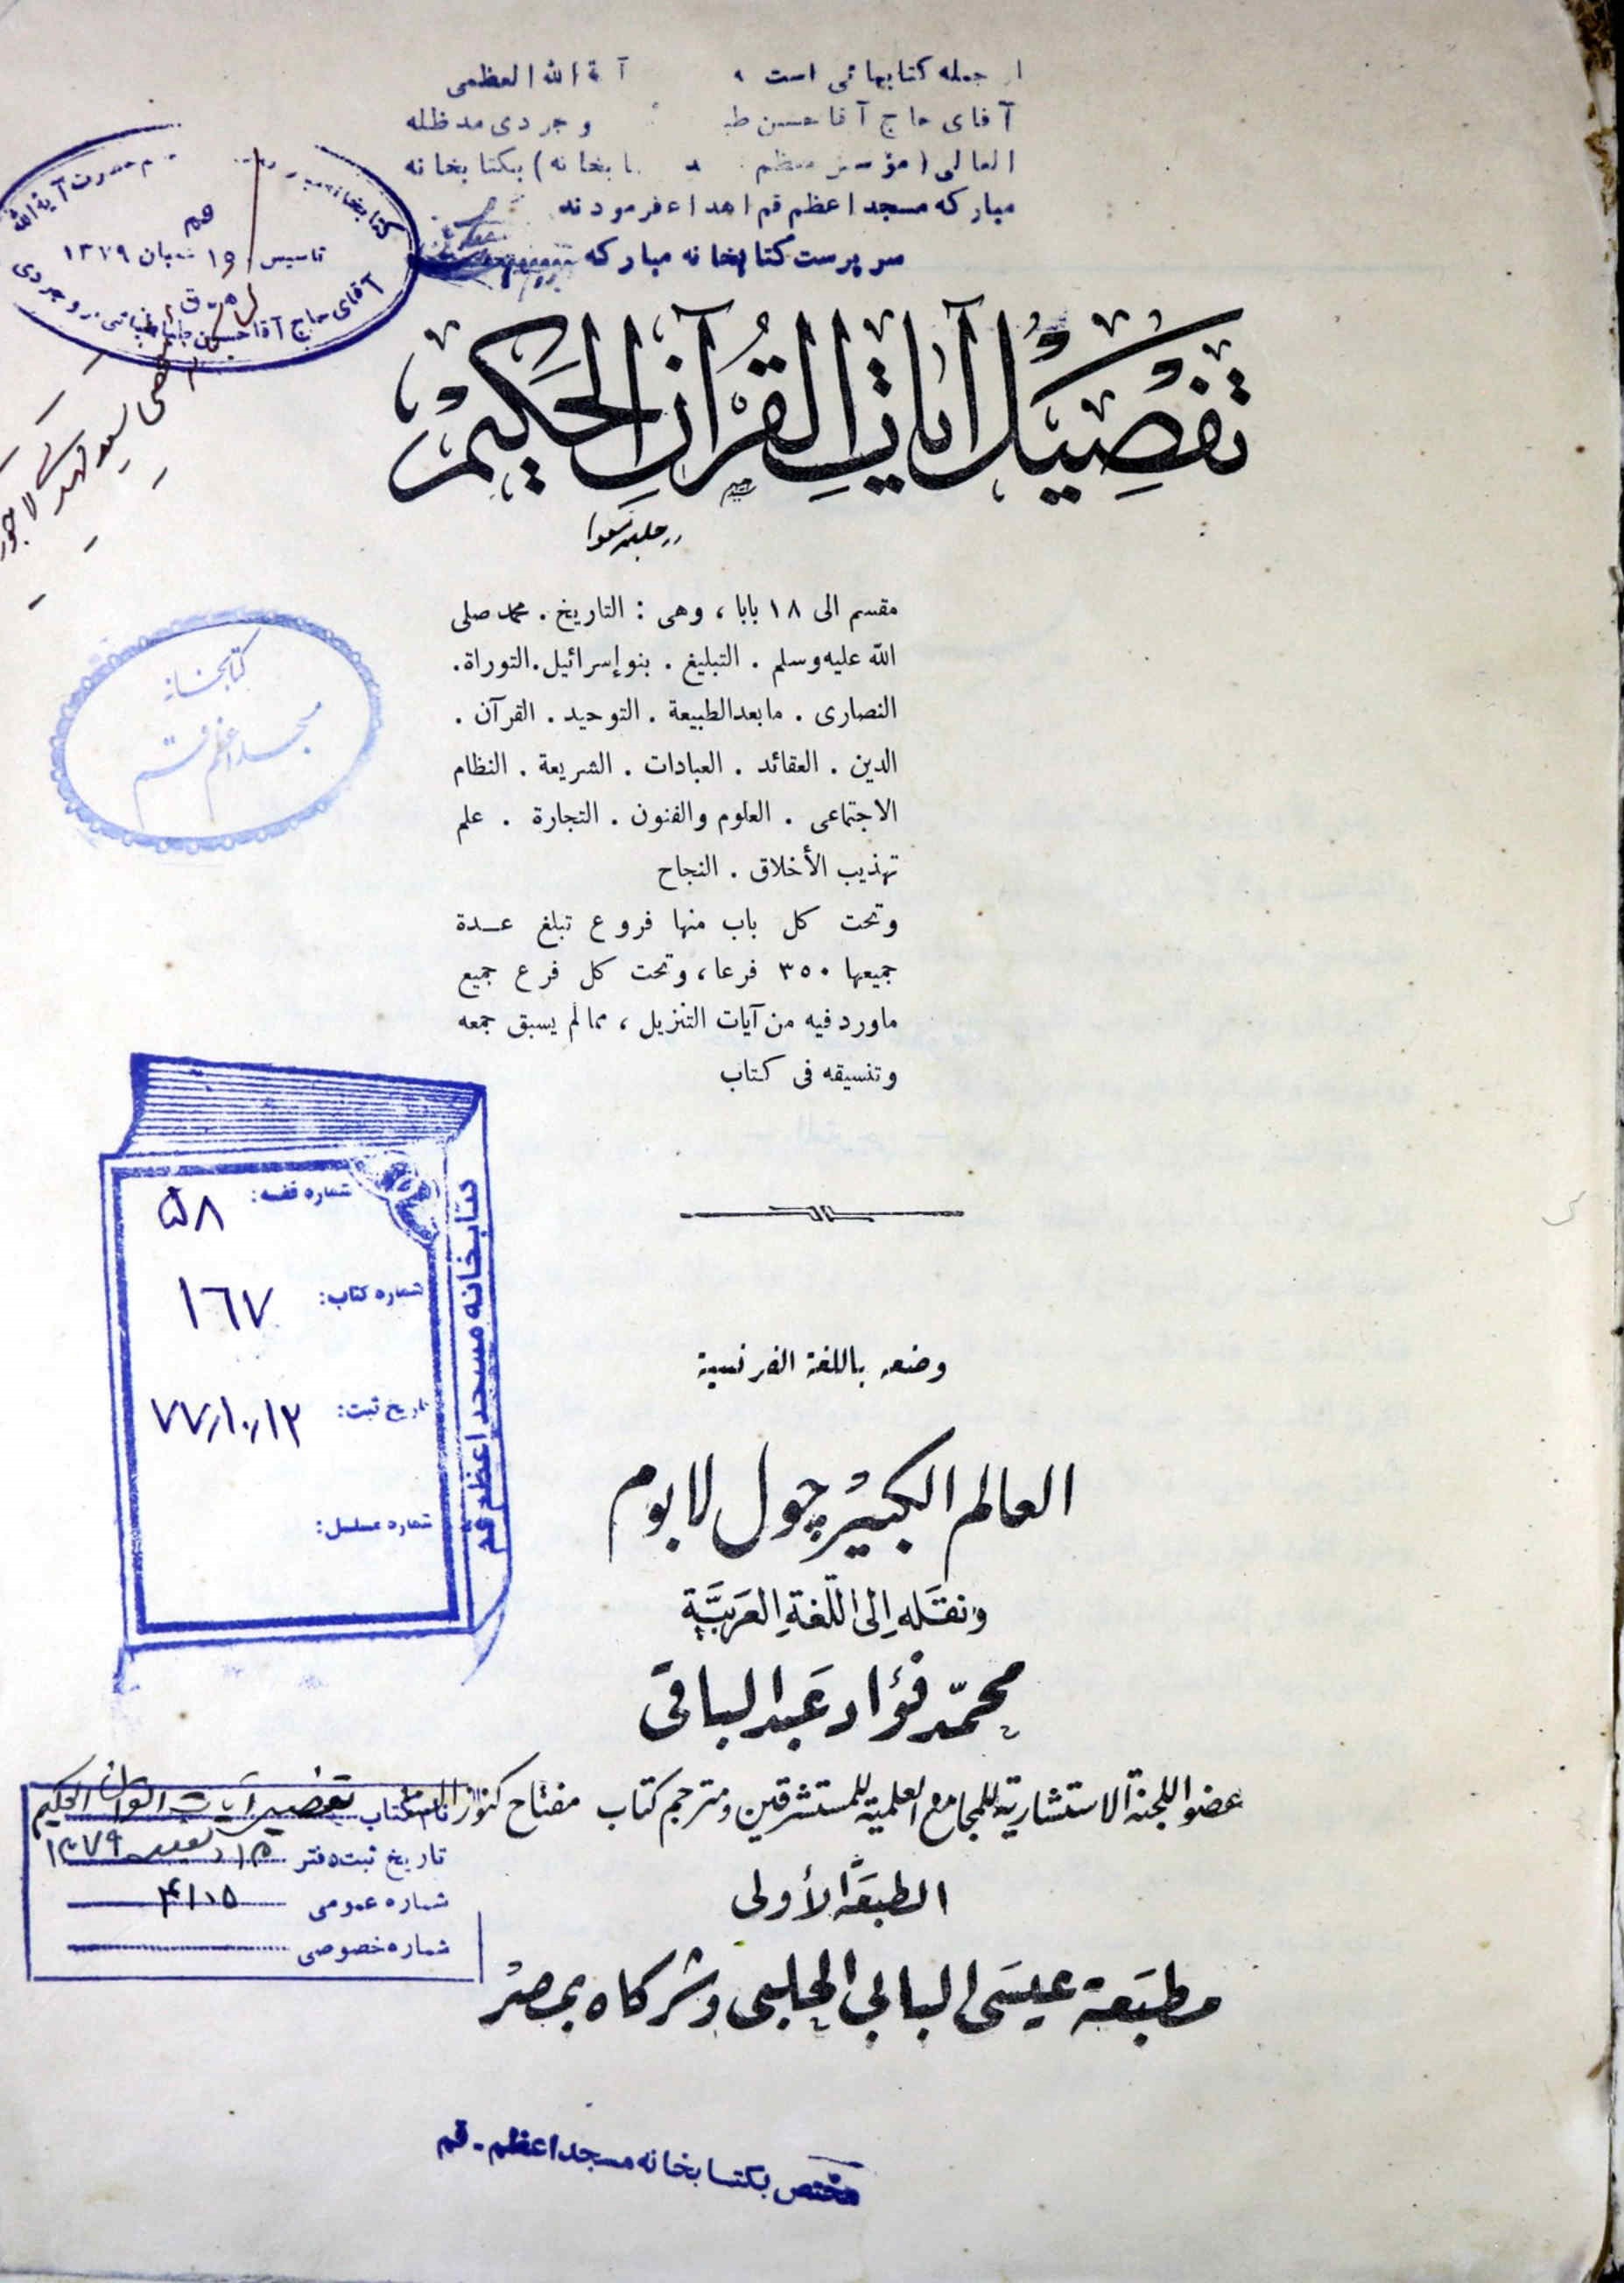 جمله کتابهائی است
آیة الله العظمی
آقای حاج آقا حسین
وجردی مدظله
العالی (مؤسس معظم
بکتابخانه
مبارکه مسجد اعظم قم اهداء فرمودند
سرپرست کتابخانه مبارکه
حضرت آیة الله
کتابخانه
قم
تاسیس ١٥ شعبان ١٣٧٩
آقای حاج آقا حسین طباطبائی بروجردی
تفصيل آيات القرآن الحكيم
كتابخانه
مسجد اعظم قم
مقسم الى ١٨ بابا ، وهى : التاريخ . محمد صلى
الله عليه وسلم . التبليغ . بنو إسرائيل . التوراة .
النصارى . مابعد الطبيعة . التوحيد . القرآن .
الدين . العقائد . العبادات . الشريعة . النظام
الاجتماعى . العلوم والفنون . التجارة . علم
تهذيب الأخلاق . النجاح
وتحت كل باب منها فروع تبلغ عدة
جميعها ٣٥٠ فرعا ، وتحت كل فرع جميع
ماورد فيه من آيات التنزيل ، مما لم يسبق جمعه
وتنسيقه فى كتاب
شماره قفسه: ۵۸
شماره کتاب: ١٦٧
تاریخ ثبت: ۷۷/۱۰/۱۲
شماره مسلسل:
کتابخانه مسجد اعظم قم
وضعه باللغة الفرنسية
العالم الكبير چول لابوم
ونقله إلى اللغة العربية
محمّد فؤاد عبد الباقى
عضو اللجنة الاستشارية للمجامع العلمية للمستشرقين ومترجم كتاب مفتاح كنوز السنة
نام کتاب تفصیل آیات القرآن الحکیم
تاریخ ثبت دفتر
۱۳۷۹
شماره عمومی
شماره خصوصی
الطبعة الأولى
مطبعة عيسى البابي الحلبى وشركاه بمصر
مختص بکتابخانه مسجد اعظم - قم